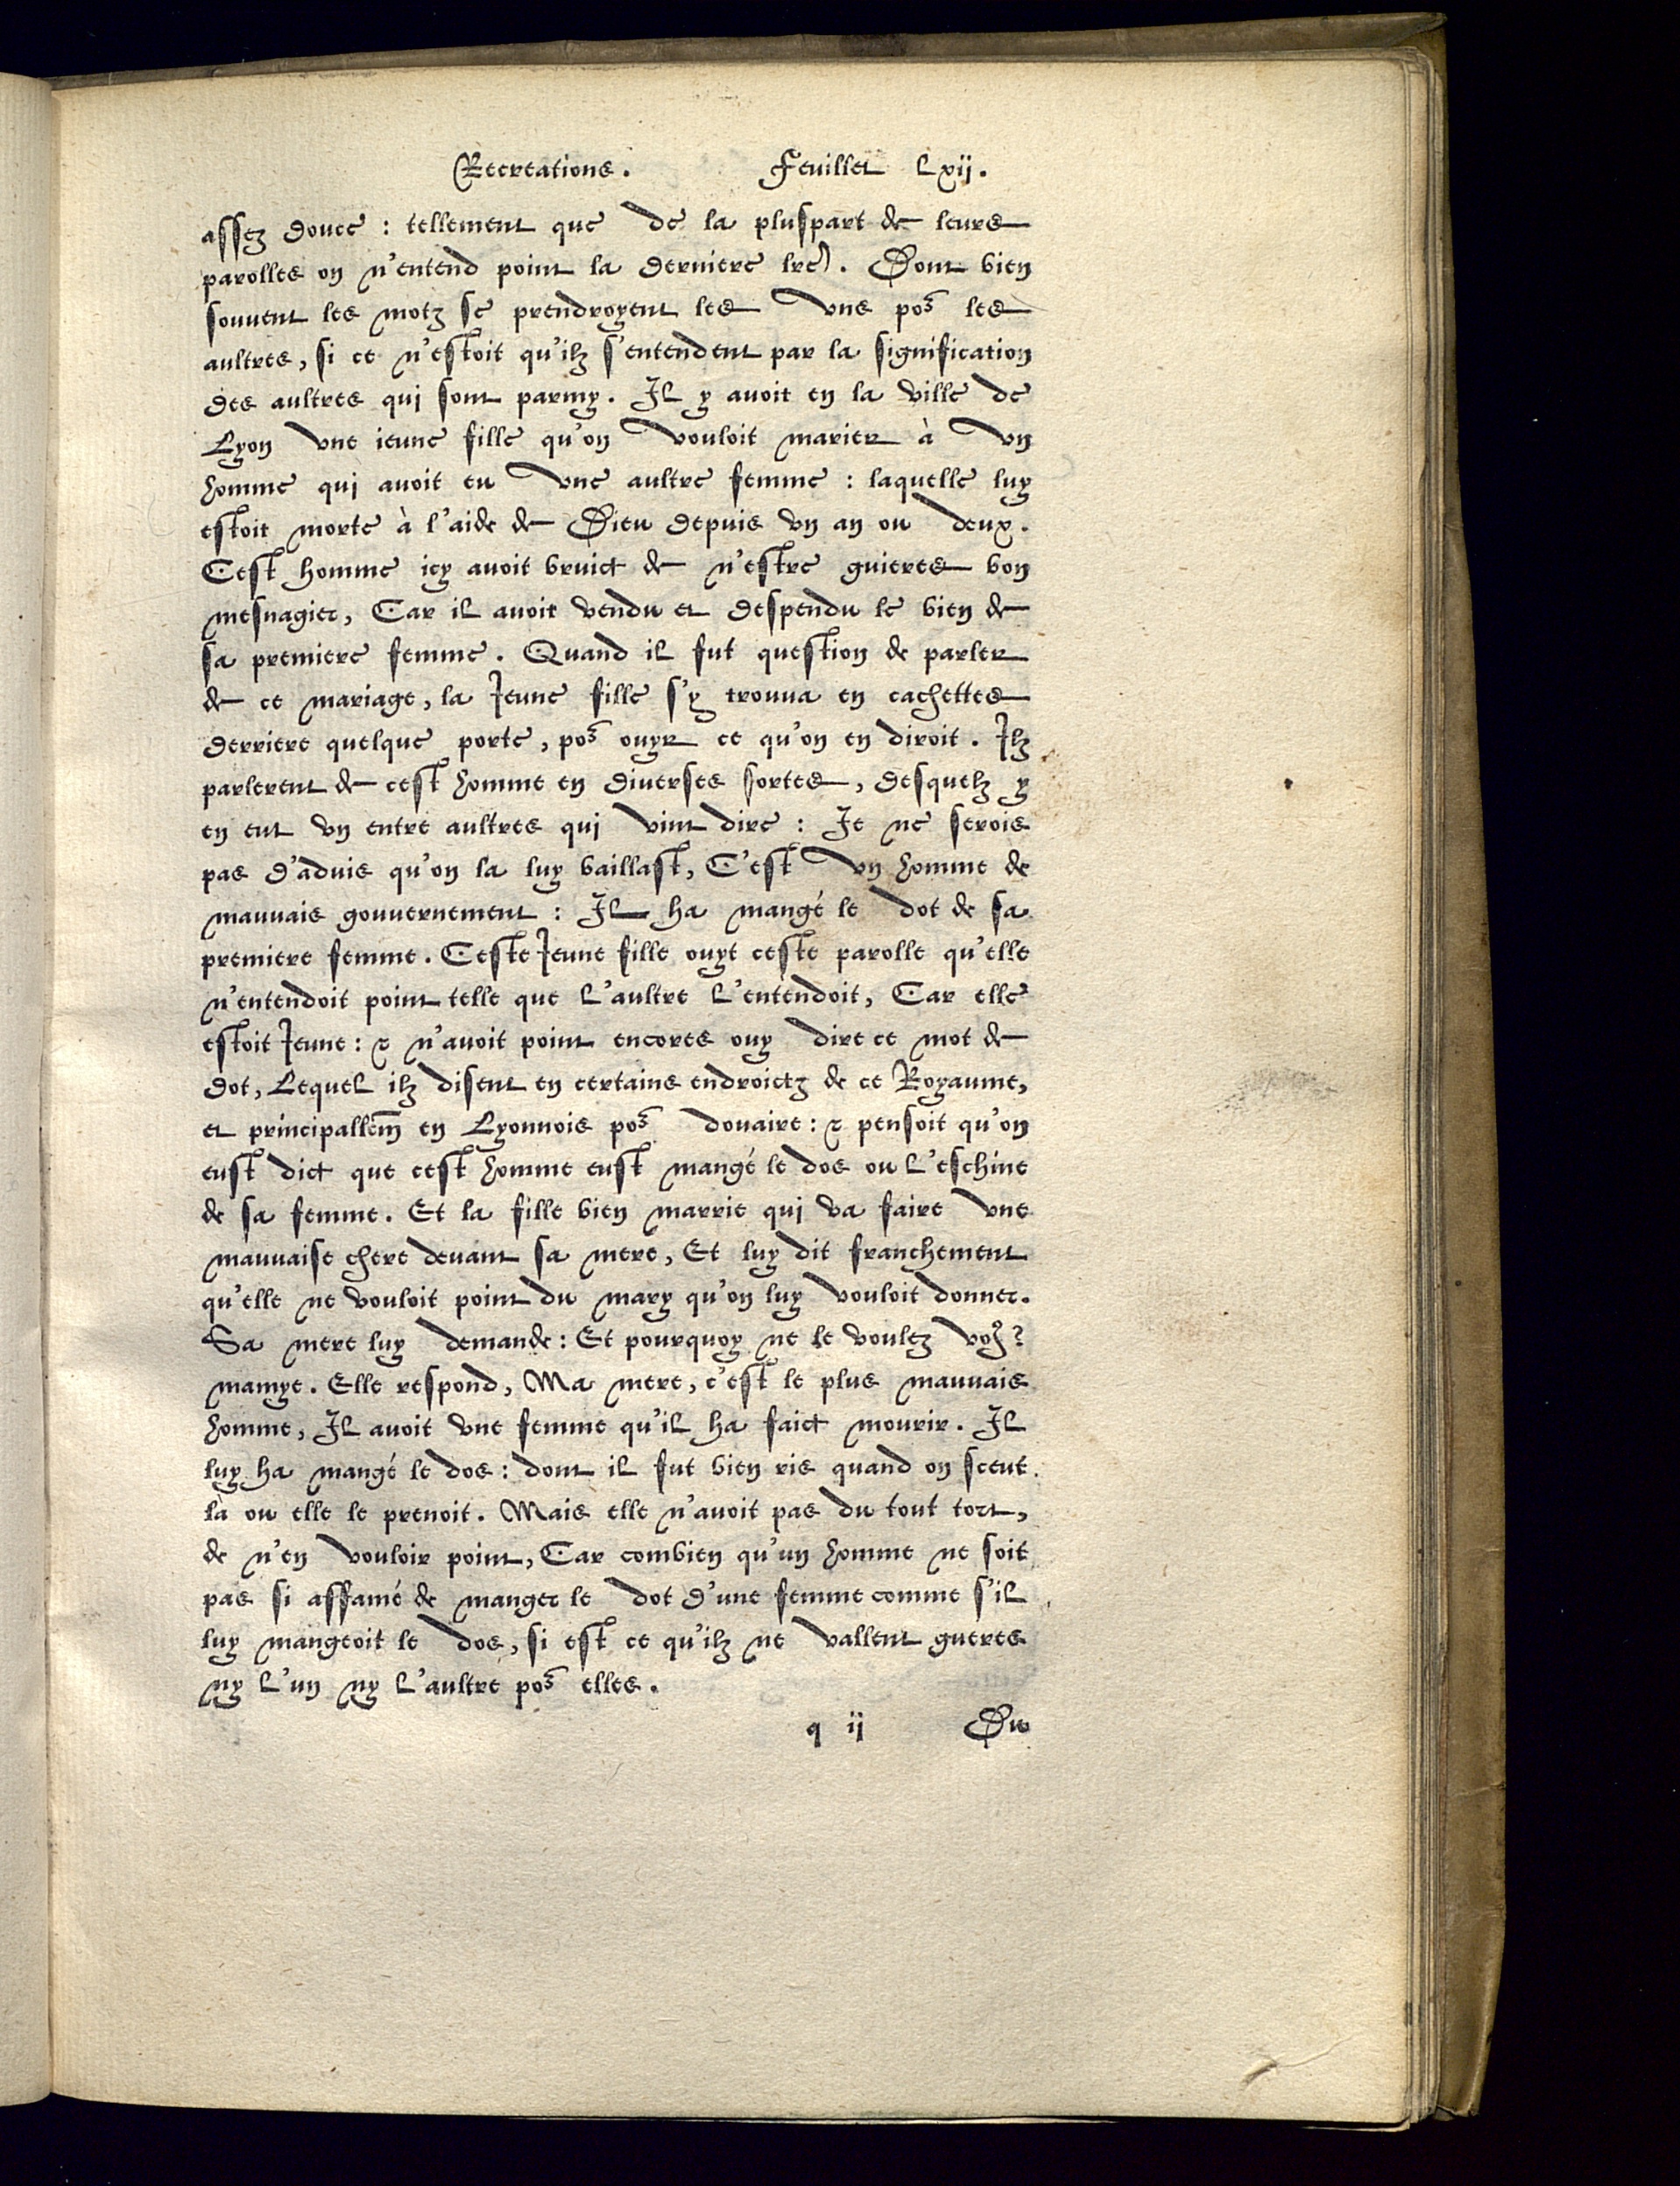 Recreations. Feuillet Lxij.
assez douce : tellement que de la pluspart de leurs
parolles on n'entend point la derniere lrē. Dont bien
souuent les motz se prendroyent les vns poͬ les
aultres, si ce n'estoit qu'ilz s'entendent par la signification
des aultres qui sont parmy. Il y auoit en la ville de
Lyon vne ieune fille qu'on vouloit marier à vn
homme qui auoit eu vne aultre femme : laquelle luy
estoit morte à l'aide de Dieu depuis vn an ou deux.
Cest homme icy auoit bruict de n'estre guieres bon
mesnagier, Car il auoit vendu et despendu le bien de
sa premiere femme. Quand il fut question de parler
de ce mariage, la Jeune fille s'y trouua en cachettes
derriere quelque porte, poͬ ouyr ce qu'on en diroit. Ilz
parlerent de cest homme en diuerses sortes, desquelz y
en eut vn entre aultres qui vint dire : Je ne serois
pas d'aduis qu'on la luy baillast, C'est vn homme de
mauuais gouuernement : Il ha mangé le dot de sa
premiere femme. Ceste Jeune fille ouyt ceste parolle qu'elle
n'entendoit point telle que l'aultre l'entendoit, Car elle
estoit Jeune : & n'auoit point encores ouy dire ce mot de
dot, Lequel ilz disent en certains endroictz de ce Royaume,
et principallem̄ en Lyonnois poͬ douaire : & pensoit qu'on
eust dict que cest homme eust mangé le dos ou l'eschine
de sa femme. Et la fille bien marrie qui va faire vne
mauuaise chere deuant sa mere, Et luy dit franchement
qu'elle ne vouloit point du mary qu'on luy vouloit donner.
Sa mere luy demande : Et pourquoy ne le voulez voꝰ ?
mamye. Elle respond, Ma mere, c'est le plus mauuais
homme, Il auoit vne femme qu'il ha faict mourir. Il
luy ha mangé le dos : dont il fut bien ris quand on sceut
là ou elle le prenoit. Mais elle n'auoit pas du tout tort,
de n'en vouloir point, Car combien qu'un homme ne soit
pas si affamé de manger le dot d'une femme comme s'il
luy mangeoit le dos, si est ce qu'ilz ne vallent gueres
ny l'un ny l'aultre poͬ elles.
q ij Du